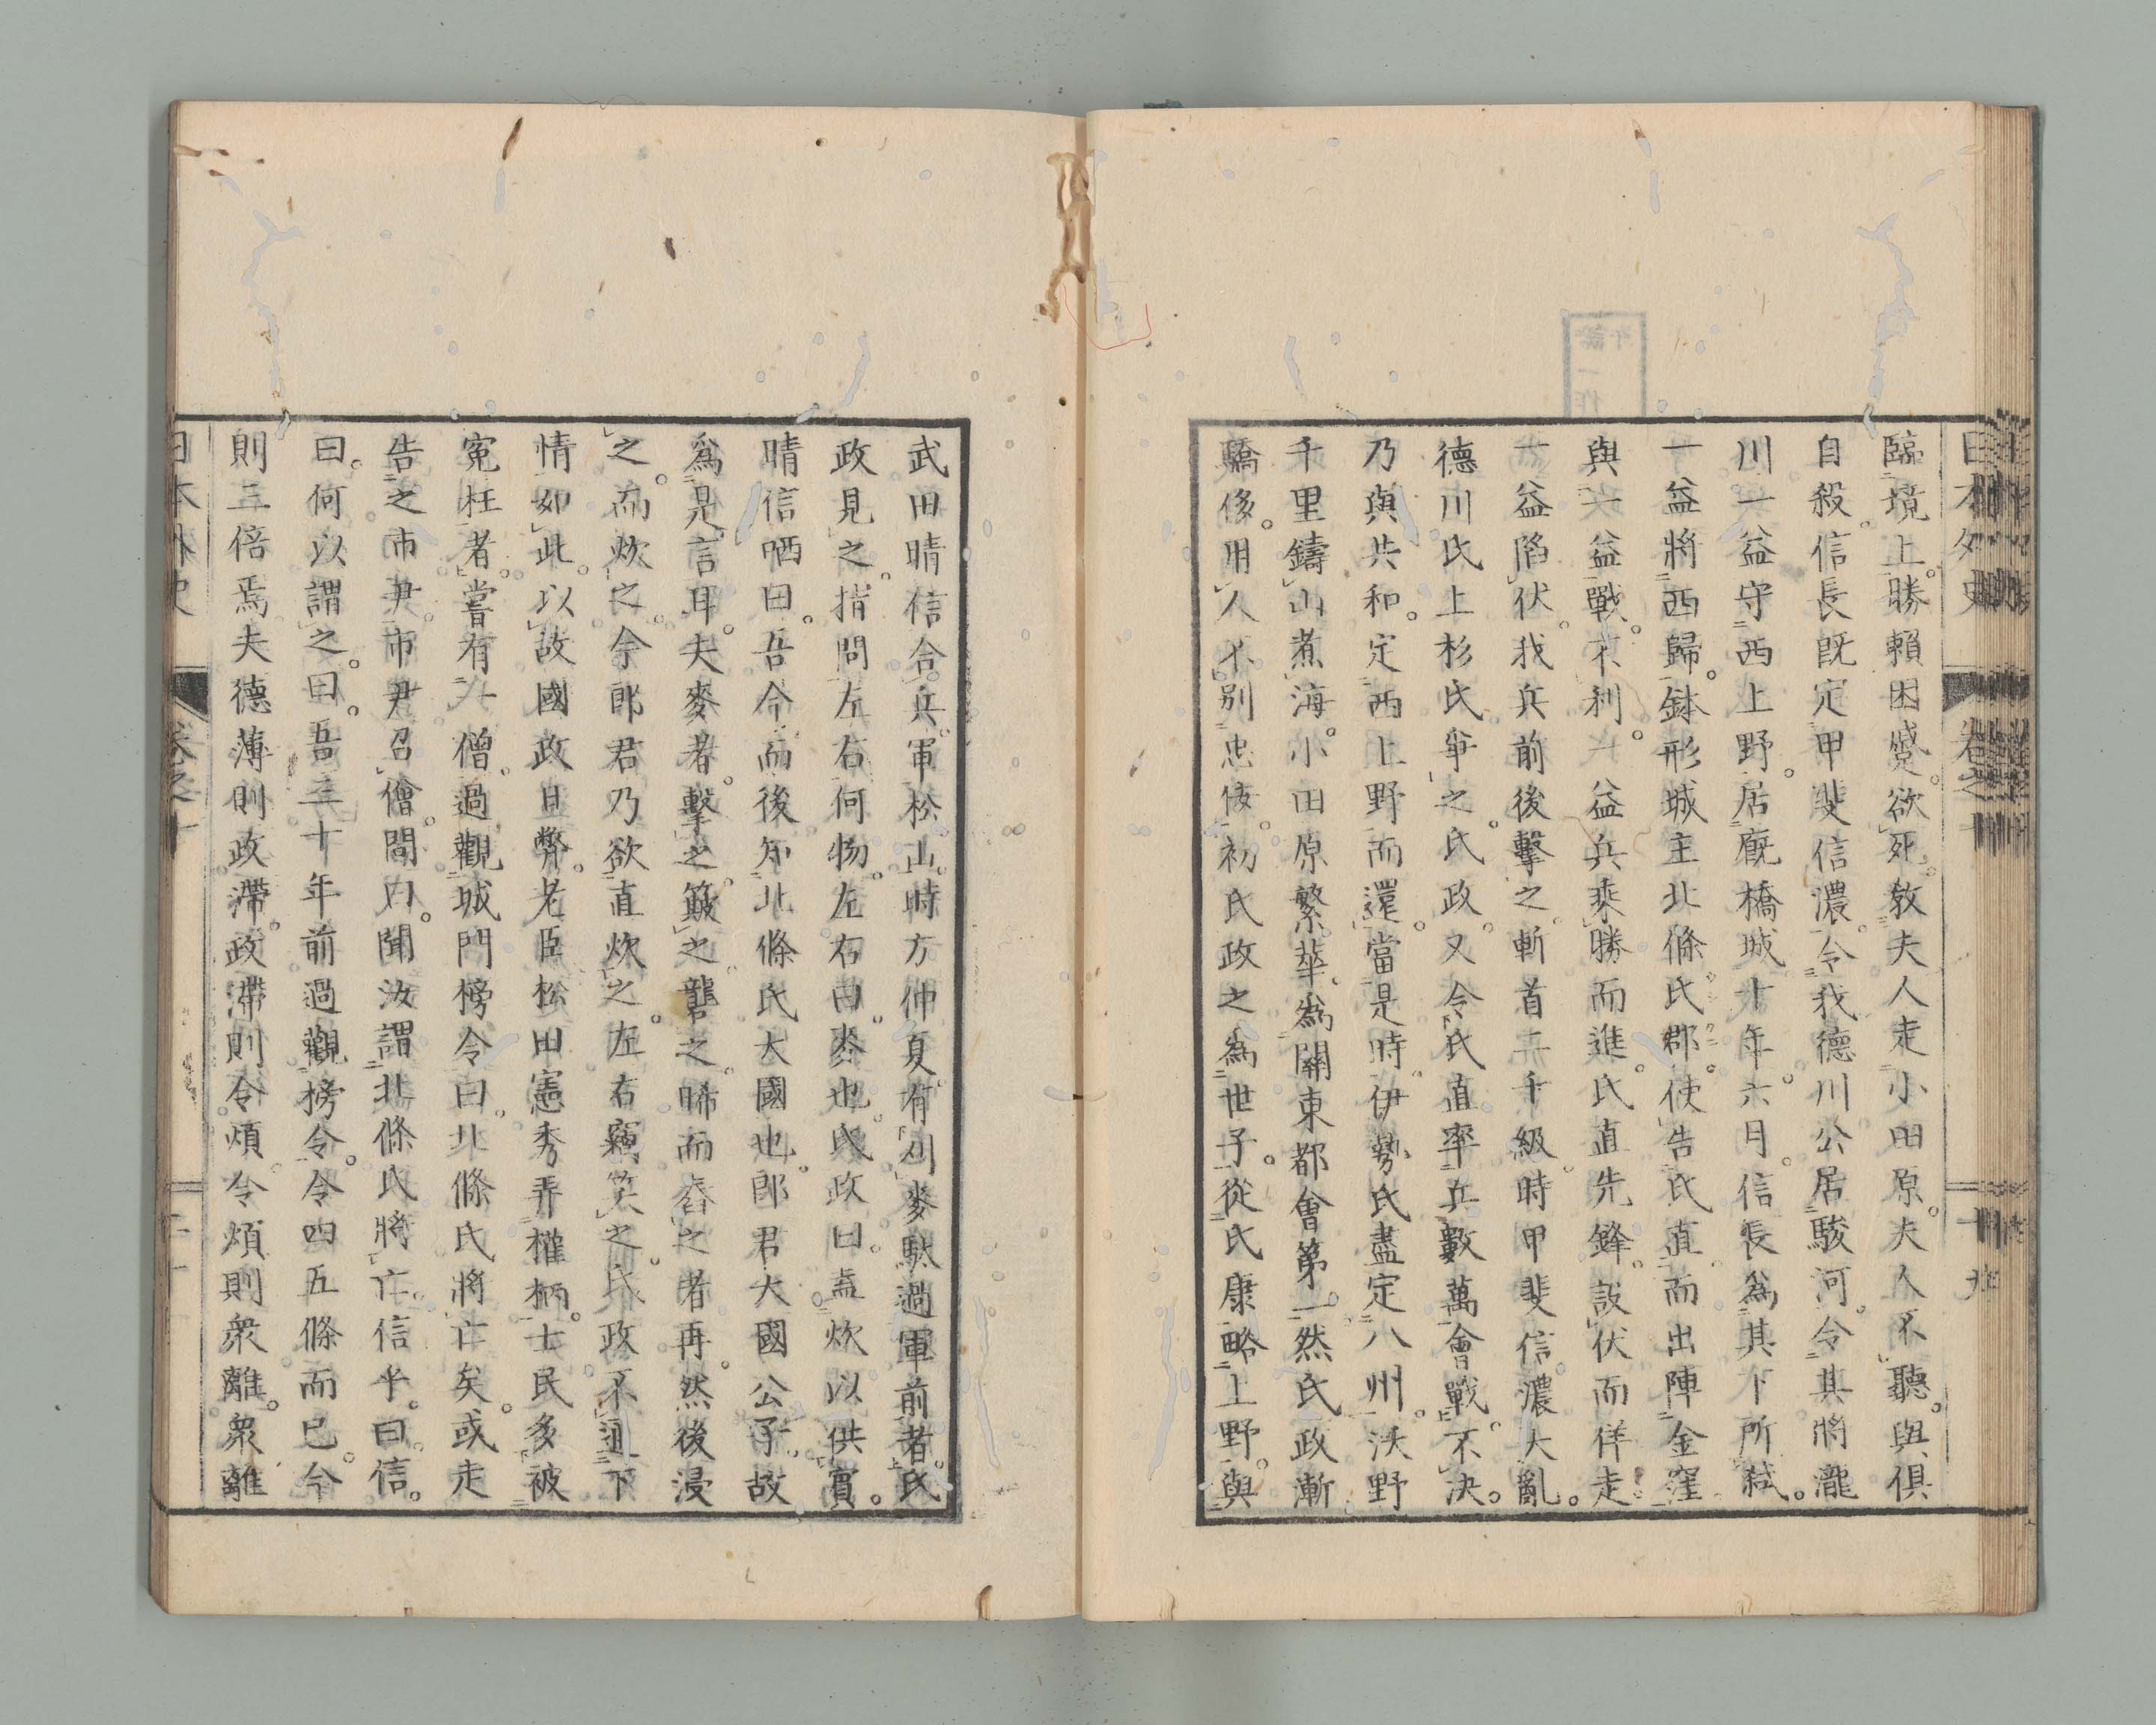 臨境上。勝賴困蹙。欲死。敎夫人走小田原。夫人不聽。與俱
自殺。信長既定甲斐信濃。令我德川公居駿河。令其將瀧
川一益守西上野。居廐橋城。十年。六月。信長爲其下所弒。
一益將西歸。鉢形城主北條氏郡。使告氏直。而出陣金窪
與一益戰。不利。一益兵乘勝而進。氏直先鋒。設伏而佯走
一益陷伏。我兵前後擊之。斬首二千級。時甲斐信濃大亂。
德川氏上杉氏爭之。氏政。又令氏直率兵數萬會戰。不決。
乃與共和。定西上野而還。當是時。伊勢氏盡定八州。沃野
千里鑄山煮海。小田原繁華。爲關東都會第一。然氏政漸
驕侈。用人不別忠佞。初氏政之爲世子。從氏康略上野。與
武田晴信合兵。軍松山。時方仲夏。有刈麥馱過軍前者。氏
政見之。指問左右何物。左右曰。麥也。氏政曰。盍炊以供賓。
晴信哂曰。吾今而後知北條氏大國也。郎君大國公子。故
爲是言耳。夫麥者。擊之。簸之。礱之。晞而舂之者再。然後浸
之。而炊之。今郎君乃欲直炊之。左右竊笑之。氏政不通下
情如此。以故國政日弊。老臣松田憲秀弄權柄。士民多被
冤枉者。嘗有一僧。過觀城門榜令曰。北條氏將亡矣。或走
告之市尹。市尹召僧問曰。聞汝謂北條氏將亡。信乎。曰。信。
曰。何以謂之。曰。吾三十年前過觀榜令。令四五條而已。今
則三倍焉。夫德薄則政滯。政滯則令煩。令煩則衆離。衆離